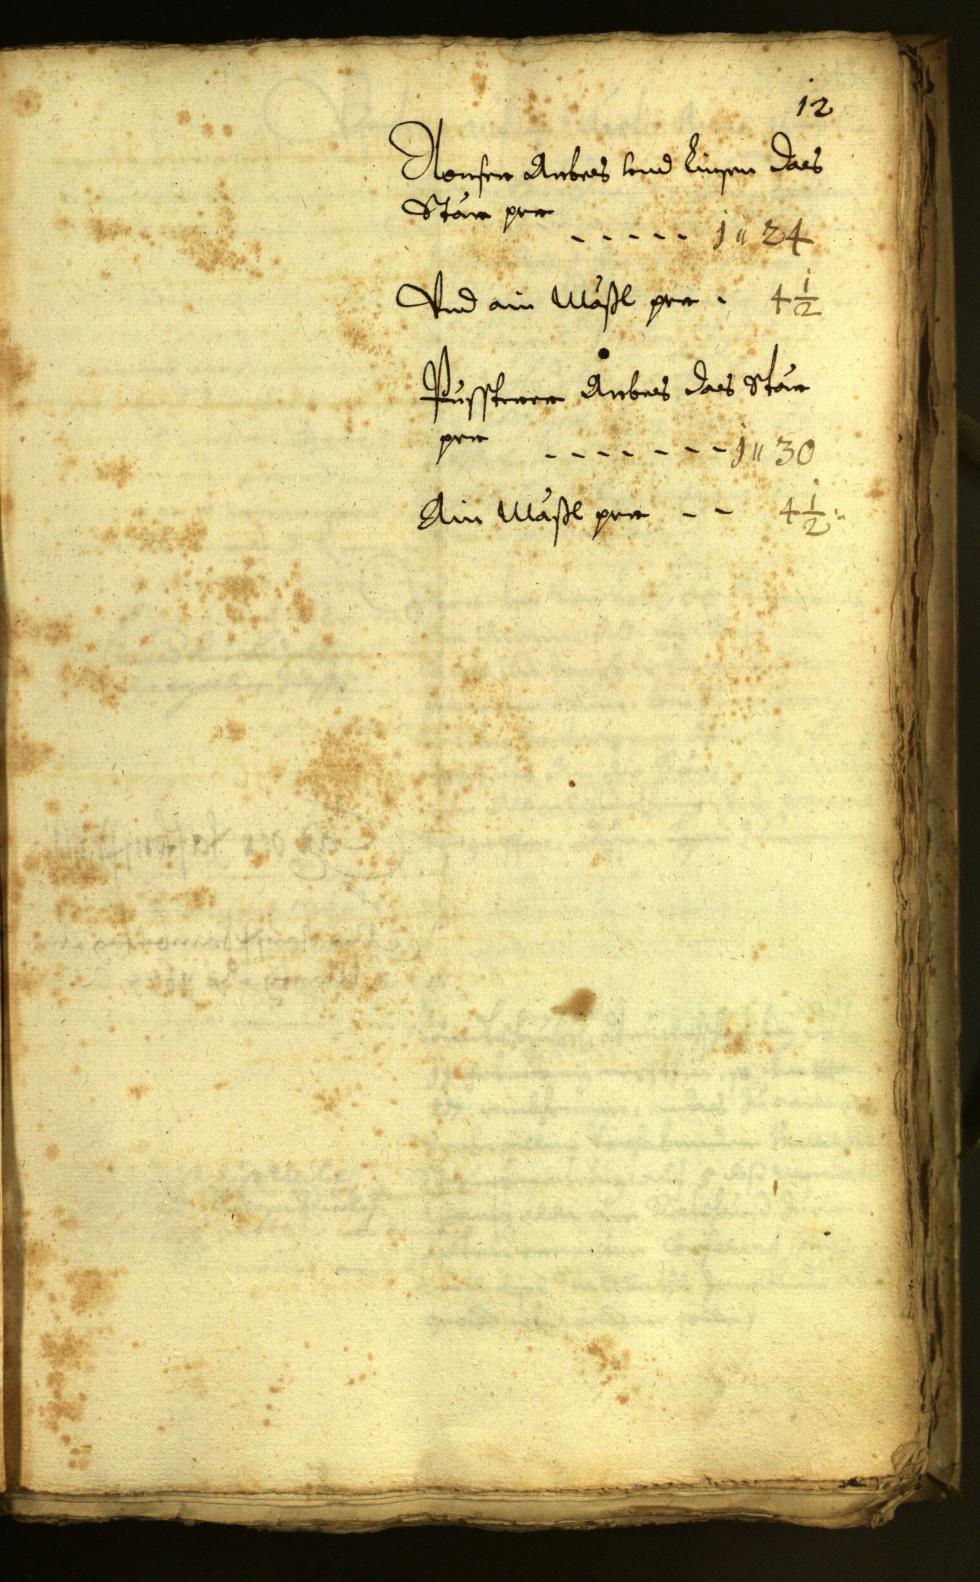 12
Nonser Arbes vnd Linsen das
Stär per
- - - - - 1 " 24
Vnd ain Mäßl per . 4 1/2
Pussterer Arbes das Stär
per
- - - - - - - 1 " 30
Ain Mäßl per - - 4 1/2